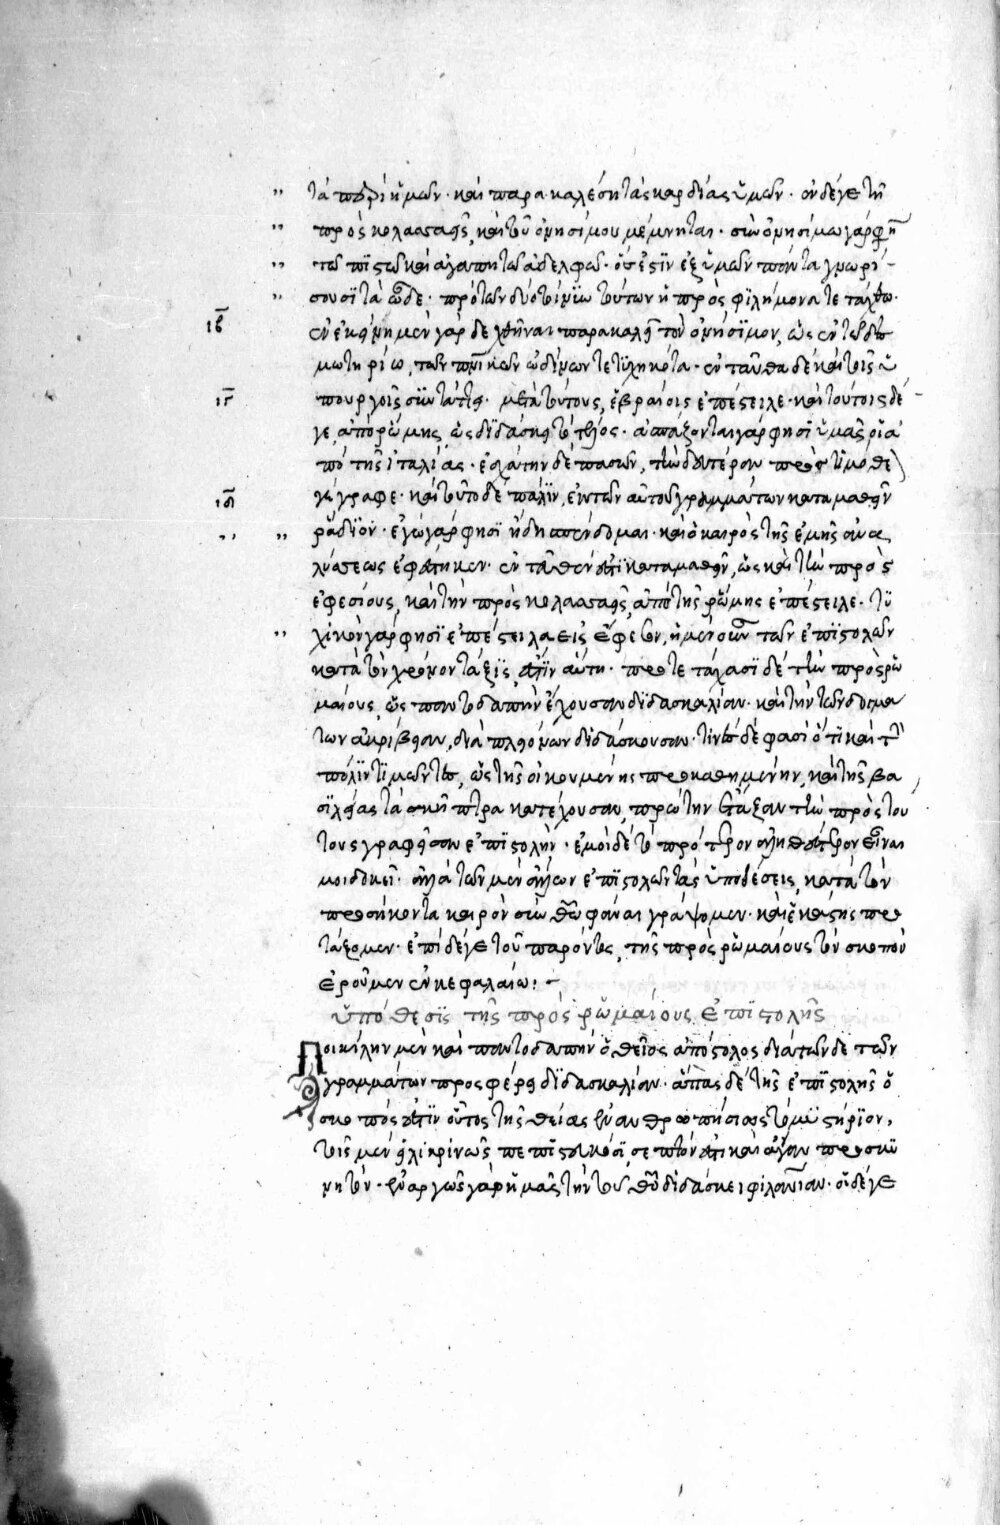 τὰ περὶ ἡμῶν · καὶ παρακαλέσῃ τὰς καρδίας ὑμῶν · ἐν δέ γε τῇ
πρὸς κολασσαεῖς, καὶ τοῦ ὀνησίμου μέμνηται · σὺν ὀνησίμω γάρ φησι
τῶ πιστῶ καὶ ἀγαπητῶ ἀδελφῶ · ὅς ἐστιν ἐξ ὑμῶν πάντα γνωρί-
σουσι τὰ ὧδε · πρὸ τῶν δύο τοίνυν τούτων ἡ πρὸς φιλήμονα τετάχθω ·
ιβ ἐν ἐκείνη μὲν γὰρ δεχθῆναι παρακαλεῖ τὸν ὀνήσιμον, ὡς ἐν τῶ δεσ
μωτηρίω, τῶν πνευματικῶν ὠδίνων τετυχηκότα · ἐνταῦθα δὲ καὶ τοῖς ὑ
ιγ πουργοῖς συντάττει · μετὰ τούτους, ἑβραίοις ἐπέστειλε · καὶ τούτοις δέ
γε, ἀπὸ ῥώμης, ὡς διδάσκει τὸ τέλος · ἀσπάζονται γάρ φησιν ὑμᾶς οἱ ἀ
πὸ τῆς ἰταλίας · ἐσχάτην δὲ πασῶν, τὴν δευτέραν πρὸς τιμόθεον
ιδ γέγραφε · καὶ τοῦτο δὲ πάλιν, ἐκ τῶν αὐτοῦ γραμμάτων καταμαθεῖν
ῥάδιον · ἐγὼ γάρ φησιν ἤδη σπένδομαι · καὶ ὁ καιρὸς τῆς ἐμῆς ἀνα
λύσεως ἐφέστηκεν · ἐντεῦθέν ἐστι καταμαθεῖν, ὡς καὶ τὴν πρὸς
ἐφεσίους, καὶ τὴν πρὸς κολασσαεῖς, ἀπὸ τῆς ῥώμης ἐπέστειλε · τυ
χικὸν γάρ φησιν ἐπέστειλα εἰς ἔφεσον, ἡ μὲν οὖν τῶν ἐπιστολῶν
κατὰ τὸν χρόνον τάξις, ἐστὶν αὕτη · προτετάχασι δὲ τὴν πρὸς ῥω
μαίους, ὡς παντοδαπὴν ἔχουσαν διδασκαλίαν · καὶ τὴν τῶν δογμά
των ἀκρίβειαν, διὰ πλειόνων διδάσκουσαν · τινὲς δέ φασιν ὅτι καὶ τὴν
πόλιν τιμῶντες, ὡς τῆς οἰκουμένης προκαθημένην, καὶ τῆς βα
σιλείας τὰ σκῆπτρα κατέχουσαν, πρώτην ἔταξαν τὴν πρὸς τού
τους γραφεῖσαν ἐπιστολήν · ἐμοὶ δὲ τὸ πρότερον ἀληθέστερον εἶναί
μοι δοκεῖ · ἀλλὰ τῶν μὲν ἄλλων ἐπιστολῶν τὰς ὑποθέσεις, κατὰ τὸν
προσήκοντα καιρὸν σὺν θεῶ φάναι γράψομεν · καὶ ἑκάστης προ
τάξομεν · ἐπὶ δέ γε τοῦ παρόντος, τῆς πρὸς ῥωμαίους τὸν σκοπὸν
ἐροῦμεν ἐν κεφαλαίω : -
ὑπόθεσις τῆς πρὸς ῥωμαίους ἐπιστολῆς
Ποικίλην μὲν καὶ παντοδαπὴν ὁ θεῖος ἀπόστολος διὰ τῶνδε τῶν
γραμμάτων προσφέρει διδασκαλίαν · ἁπάσης δὲ τῆς ἐπιστολῆς ὁ
σκοπός ἐστιν οὗτος τῆς θείας ἐνανθρωπήσεως τὸ μυστήριον,
τοῖς μὲν εἰλικρινῶς πεπιστευκόσι, σεπτόν ἐστι καὶ ἄγαν προσκυ
νητόν · ἐναργῶς γὰρ ἡμᾶς τὴν τοῦ θεοῦ διδάσκει φιλανθρωπίαν · οἱ δέ γε